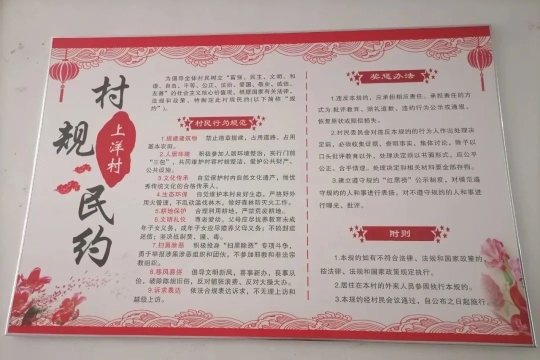 村规民约
上洋村
为倡导全体村民树立“富强、民主、文明、和
谐、自由、平等、公正、法治、爱国、敬业、诚信、
友善”的社会主义核心价值观，根据国家有关法律、
法规和政策，特制定此村规民约（以下简称“规
约”）。
村民行为规范
1.规建建筑物 禁止违章搭建，占用道路，占用
基本农田。
2.人居环境 积极参加人居环境整治，实行门前
“三包”，共同维护村容村貌整洁，爱护公共财产、
公共设施。
3.文化传承 自觉保护村内自然文化遗产，做优
秀传统文化的合格传承人。
4.生态环保 自觉维护本村良好生态，严格野外
用火管理，不乱砍滥伐林木，做好森林防灭火工作。
5.耕地保护 合理利用耕地，严禁荒废耕地。
6.文明礼仪 尊老爱幼，父母应求抚养教育未成
年子女义务，成年子女应尽赡养父母义务；不欺
弱；坚决抵制黄、赌、毒。
7.扫黑除恶 积极投身“扫黑除恶”专项斗争，
勇于举报涉黑涉恶组织和团伙，不参加邪教和非法宗
教组织。
8.移风易俗 倡导文明新风，喜事新办、丧事从
俭，破除陈规旧俗，反对铺张浪费、反对大操大办。
9.诉求表达 依法合规表达诉求，不无理上访和
越级上访。
奖惩办法
1.违反本规约，应承担相应责任，承担责任的方
式为：批评教育、赔礼道歉、违约行为公示或通报、
恢复原状或赔偿损失。
2.村民委员会对违反本规约的行为人作出处理决
定前，必须收集证据，查明事实，集体讨论，除予以
口头批评教育以外，处理决定须以书面形式，应公平
公正、合乎情理，处理决定和相关材料要全部存档。
3.建立遵守规约的“红黑榜”公示制度，对模范遵
守规约的人和事进行表扬，对不遵守规约的人和事进
行曝光、批评。
附则
1.本规约如有不符合法律、法规和国家政策的，
按法律、法规和国家政策规定执行。
2.居住在本村的外来人员参照执行本规约。
3.本规约经村民会议通过，自公布之日起施行。